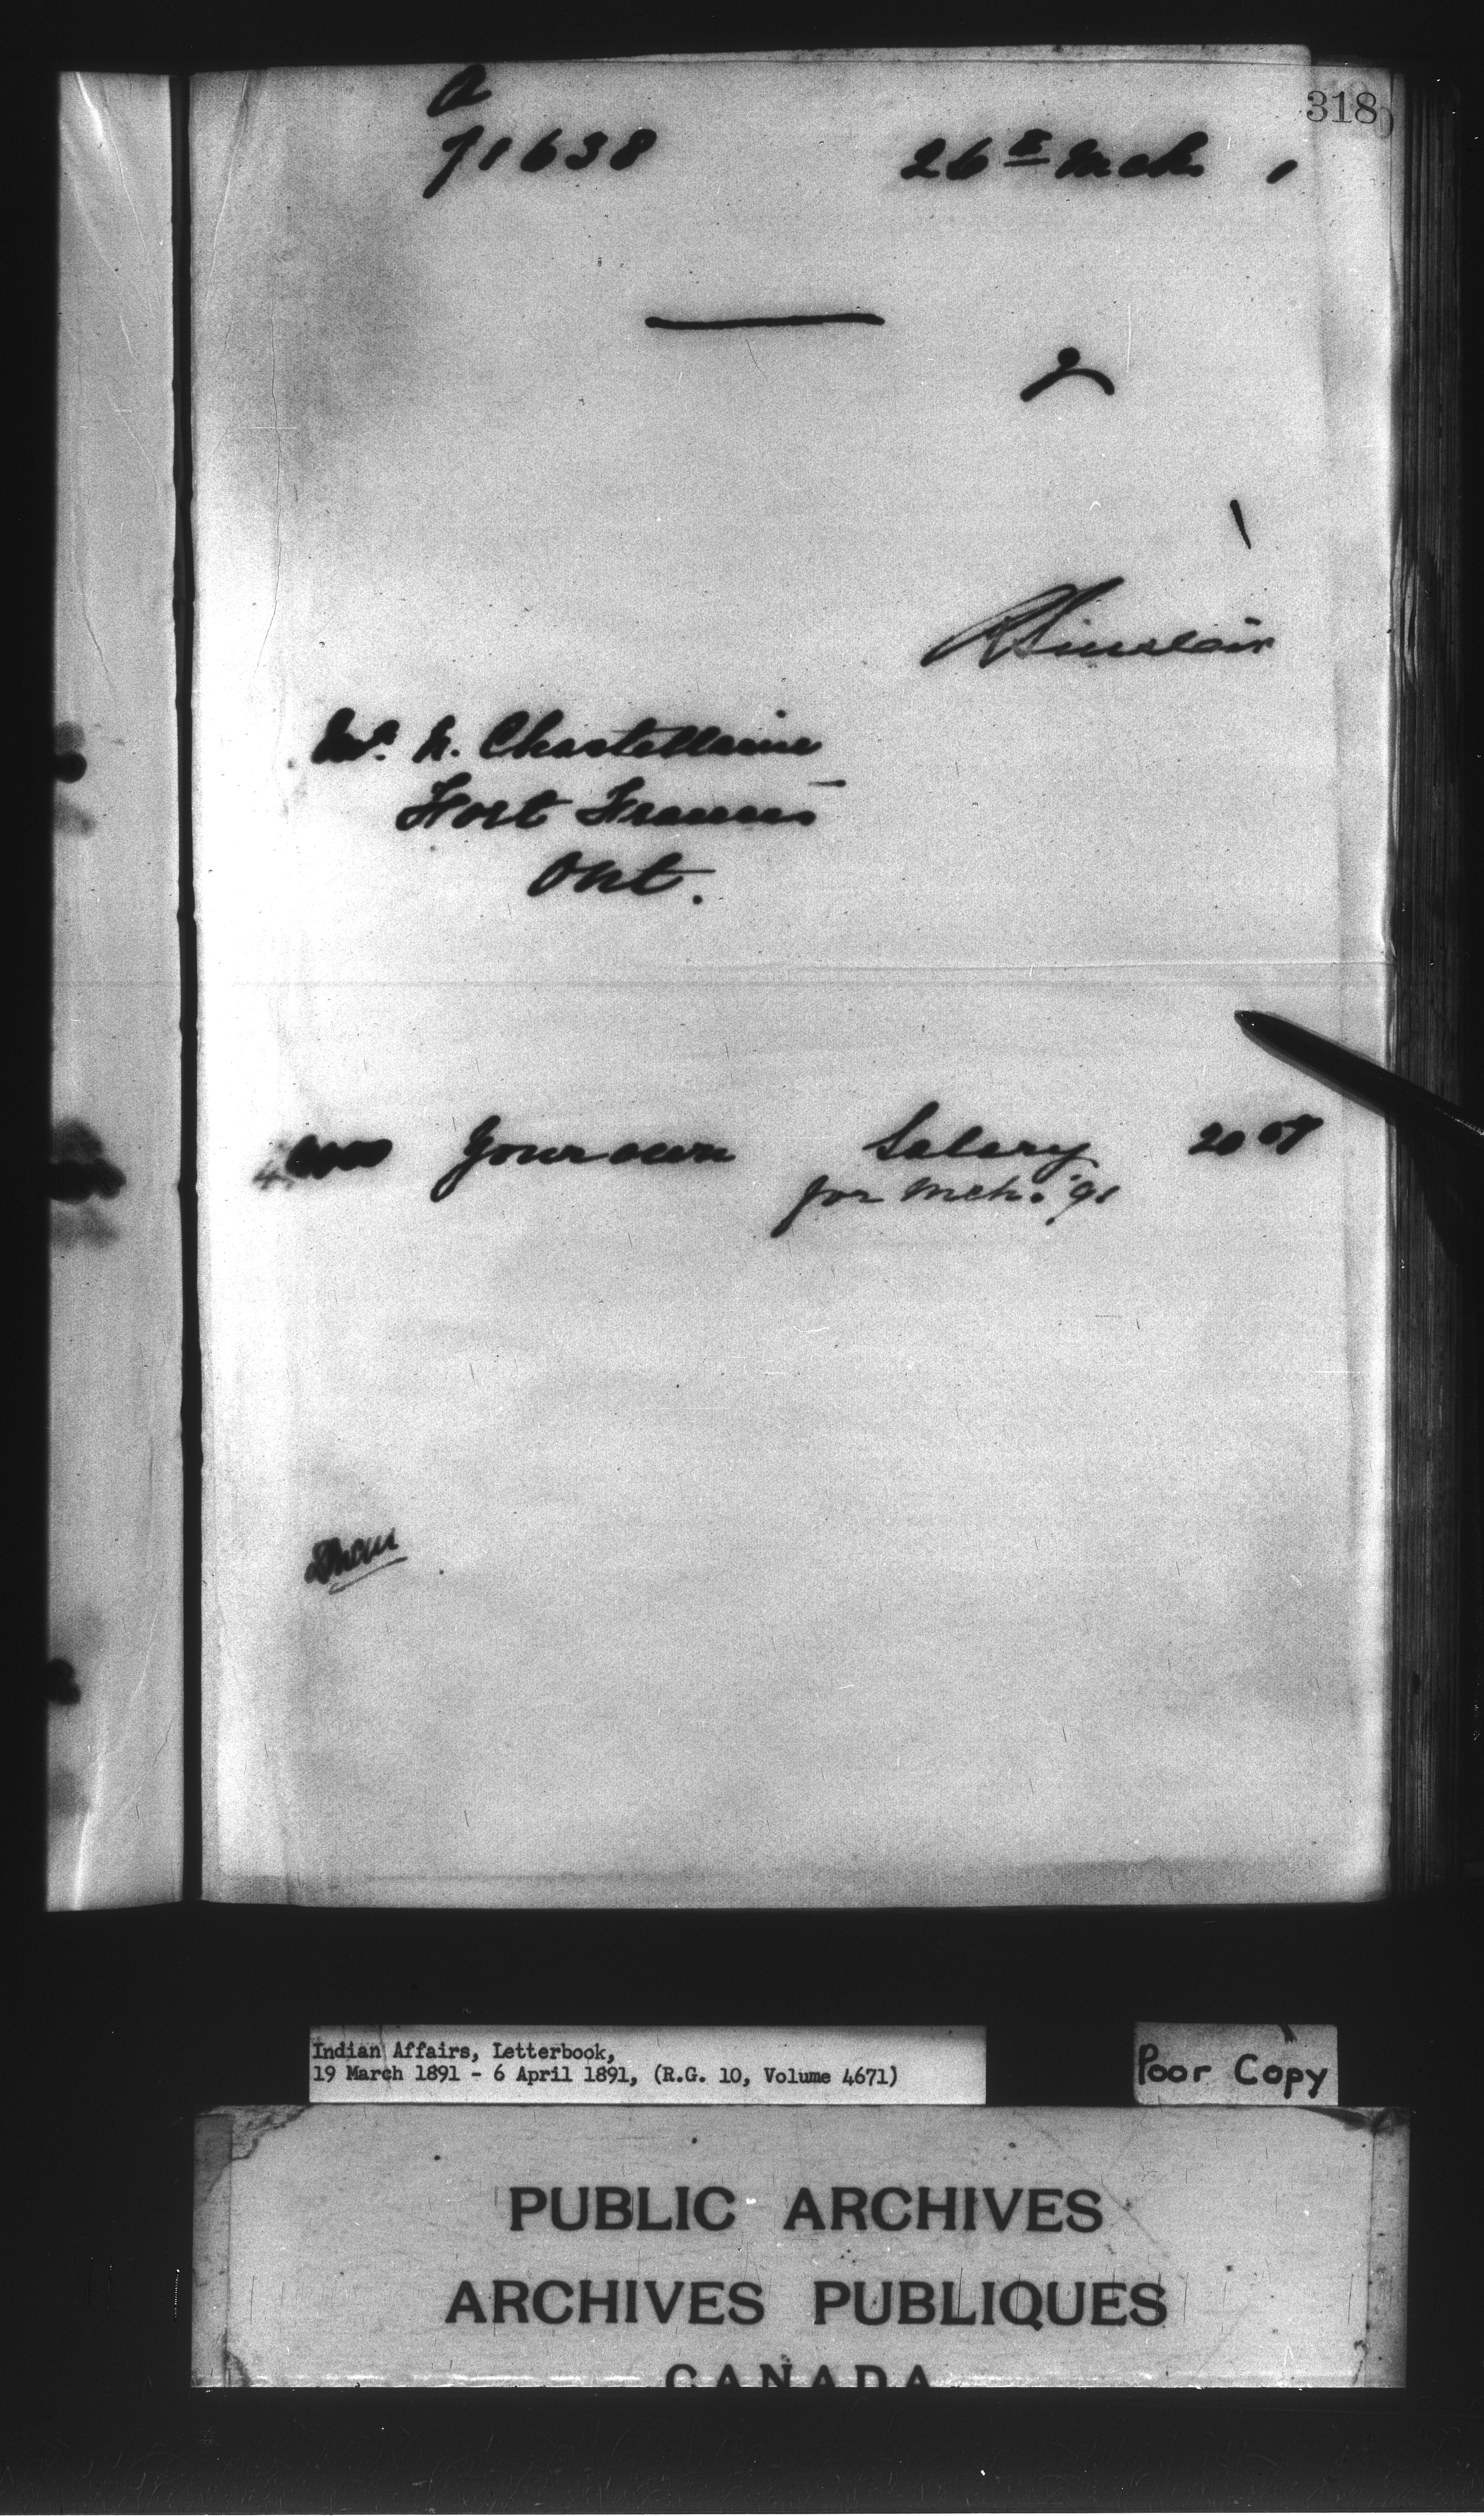 318
A
71638 26th Mch 1
R Sinclair
Mr. N. Chastellaine
Fort Francis
Ont.
your own Salary 20 00
for Mch. '91
Indian Affairs, Letterbook,
19 March 1891 - 6 April 1891, (R.G. 10, Volume 4671)
Poor Copy
PUBLIC ARCHIVES
ARCHIVES PUBLIQUES
CANADA